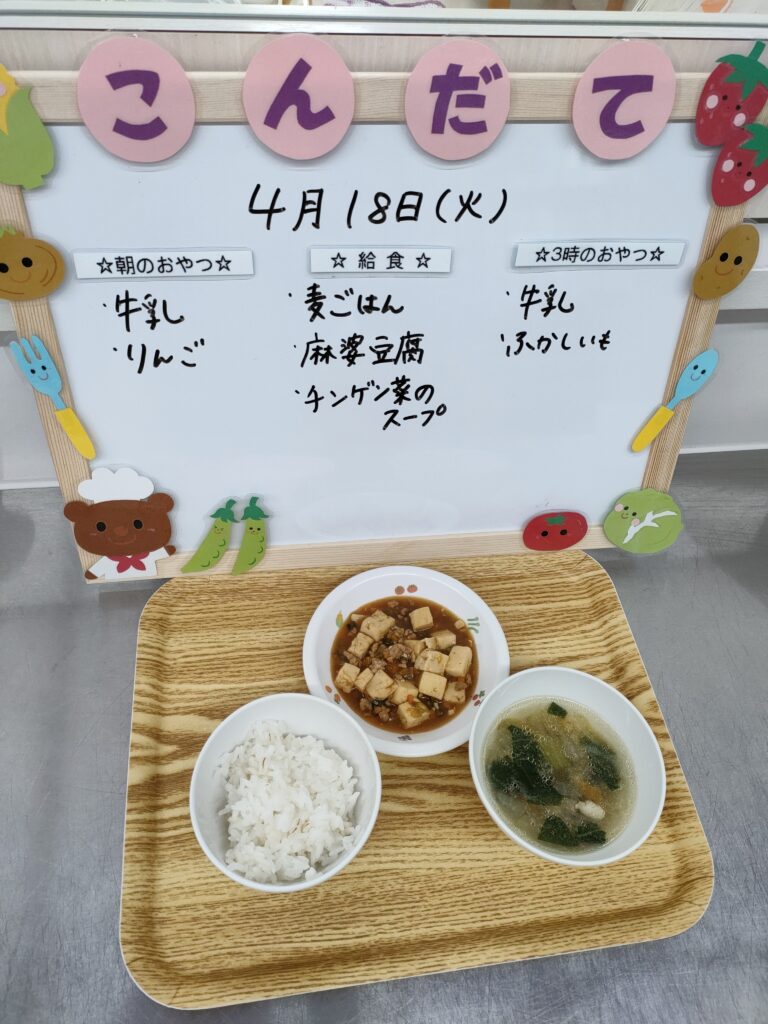 こんだて
4月18日(火)
☆朝のおやつ☆
・牛乳
・りんご
☆ 給 食 ☆
・麦ごはん
・麻婆豆腐
・チンゲン菜の
スープ
☆3時のおやつ☆
・牛乳
・ふかしいも